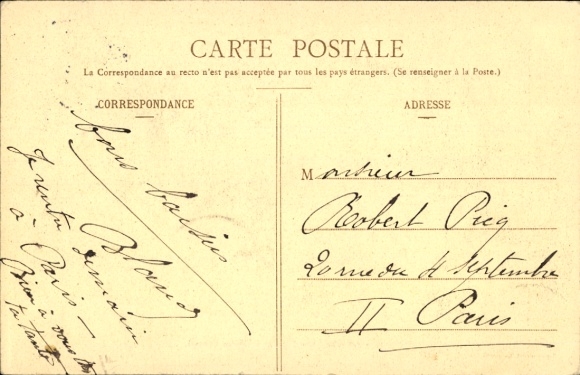 CARTE POSTALE
La Correspondance au recto n'est pas acceptée par tous les pays étrangers. (Se renseigner à la Poste.)
CORRESPONDANCE
bons baisers
Je rentre demain
à Paris
à vous
ta tante
ADRESSE
Monsieur
Robert Picq
rue du 4 Septembre
II Paris